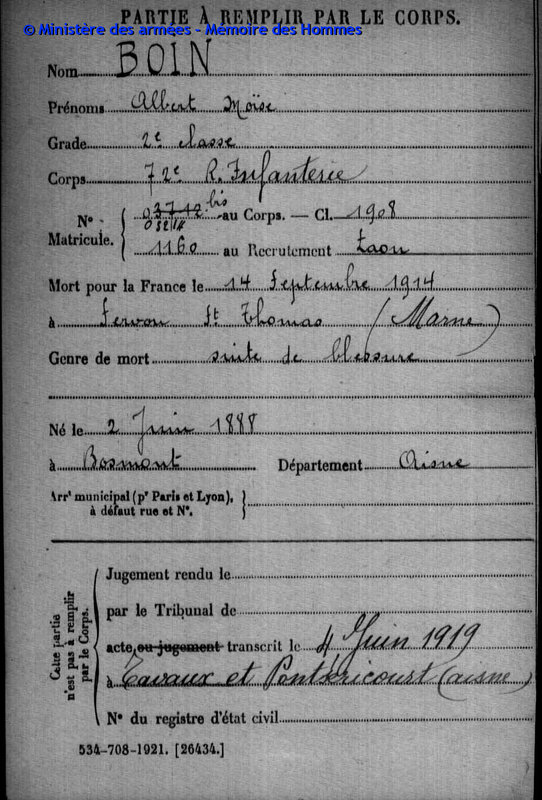 PARTIE À REMPLIR PAR LE CORPS.
© Ministère des armées - Mémoire des Hommes
Nom BOIN
Prénoms Albert Moïse
Grade 2e classe
Corps 72e R. Infanterie
N° Matricule. { 03712 bis au Corps. — Cl. 1908
1160 au Recrutement Laon
Mort pour la France le 14 Septembre 1914
à Servon St Thomas (Marne)
Genre de mort suite de blessure
Né le 2 Juin 1888
à Bosmont Département Aisne
Arrt municipal (pr Paris et Lyon), à défaut rue et N°. }
Cette partie n'est pas à remplir par le Corps. {
Jugement rendu le
par le Tribunal de
acte ou jugement transcrit le 4 Juin 1919
à Tavaux et Pontséricourt (aisne)
N° du registre d'état civil
534-708-1921. [26434.]